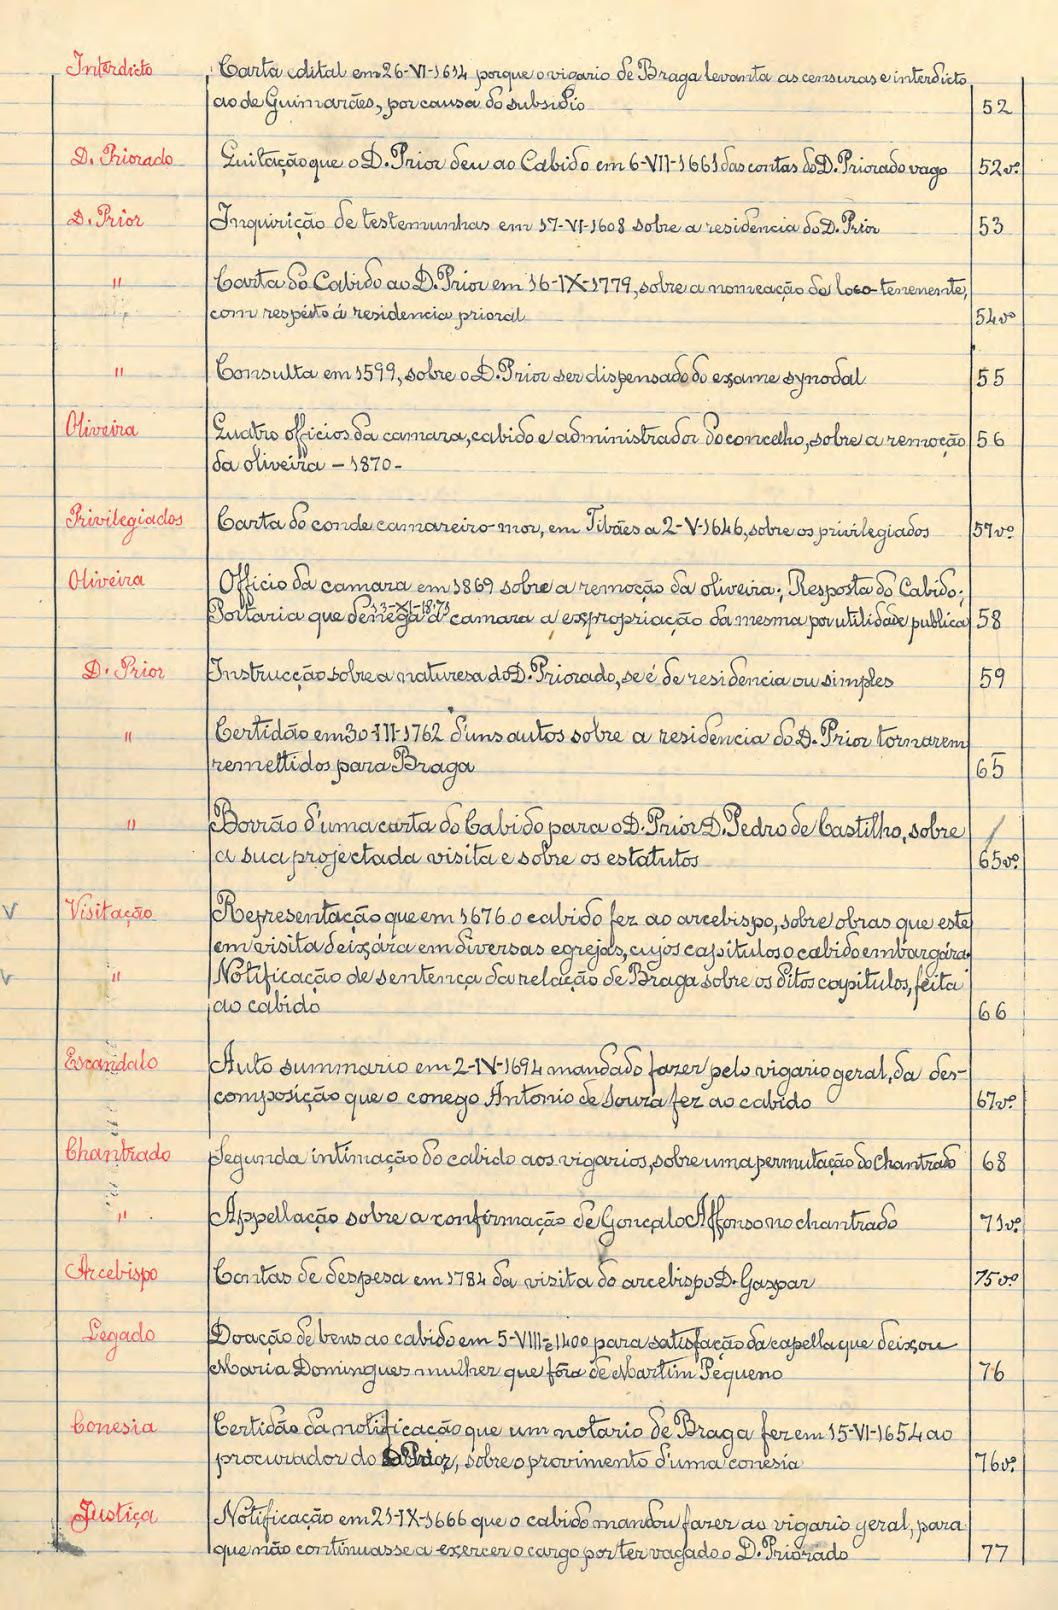 Interdicto Carta edital em 26-VI-1614 porque o vigario de Braga levanta as censuras e interdicto
ao de Guimarães, por causa do subsidio 52
D. Priorado Quitação que o D. Prior deu ao Cabido em 6-VII-1661 das contas do D. Priorado vago 52vº.
D. Prior Inquirição de testemunhas em 17-VI-1608 sobre a residencia do D. Prior 53
" Carta do Cabido ao D. Prior em 16-IX-1779, sobre a nomeação do loco-tenenente,
com respeito á residencia prioral 54vº
" Consulta em 1599, sobre o D. Prior ser dispensado do exame synodal 55
Oliveira Quatro officios da camara, cabido e administrador do concelho, sobre a remoção 56
da oliveira - 1870 -
Privilegiados Carta do conde camareiro-mor, em Tibães a 2-V-1646, sobre os privilegiados 57vº.
Oliveira Officio da camara em 1869 sobre a remoção da oliveira; Resposta do Cabido;
13-XI-1873
Portaria que denega á camara a expropriação da mesma por utilidade publica 58
D. Prior Instrucção sobre a naturesa do D. Priorado, se é de residencia ou simples 59
" Certidão em 30-III-1762 d'uns autos sobre a residencia do D. Prior tornarem
remettidos para Braga 65
" Borrão d'uma carta do Cabido para o D. Prior D. Pedro de Castilho, sobre /
a sua projectada visita e sobre os estatutos 65vº.
V Visitação Representação que em 1676 o cabido fez ao arcebispo, sobre obras que este
em visita deixára em diversas egrejas, cujos capitulos o cabido embargára
V " Notificação de sentença da relação de Braga sobre os ditos capitulos, feita
ao cabido 66
Escandalo Auto summario em 2-IV-1694 mandado fazer pelo vigario geral, da des-
composição que o conego Antonio de Souza fez ao cabido 67vº.
Chantrado Segunda intimação do cabido aos vigarios, sobre uma permutação do Chantrado 68
" Appellação sobre a confirmação de Gonçalo Affonso no chantrado 71vº.
Arcebispo Contas de despesa em 1784 da visita do arcebispo D. Gaspar 75vº.
Legado Doação de bens ao cabido em 5-VIII-1400 para satisfação da capella que deixou
Maria Domingues mulher que fôra de Martim Pequeno 76
Conesia Certidão da notificação que um notario de Braga fez em 15-VI-1654 ao
procurador do D. Prior, sobre o provimento d'uma conesia 76vº.
Justiça Notificação em 21-IX-1666 que o cabido mandou fazer ao vigario geral, para
que não continuasse a exercer o cargo por ter vagado o D. Priorado 77